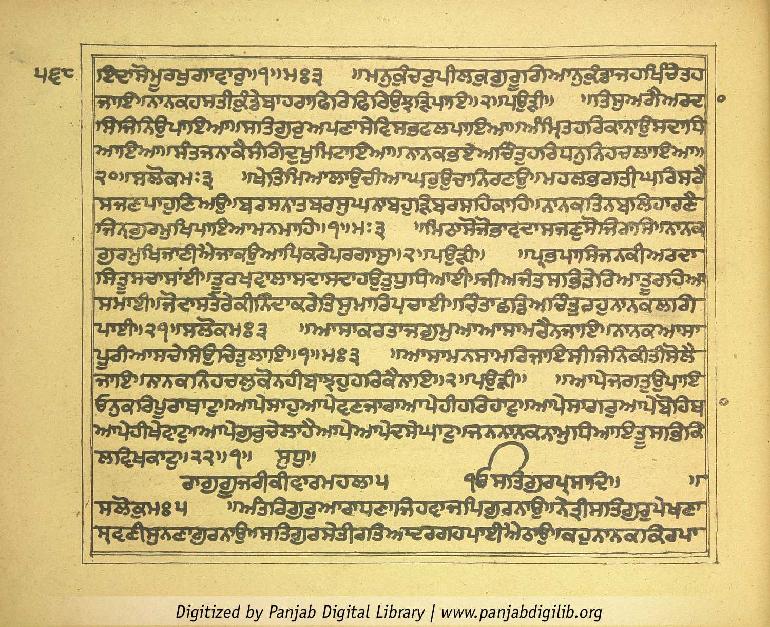 ੫੬੮
ਇਦਾ ਸੋ ਮੂਰਖੁ ਗਾਵਾਰੁ ॥੧॥ ਮਃ ੩ ॥ ਮਨੁ ਕੁੰਚਰੁ ਪੀਲਕੁ ਗੁਰੂ ਗਿਆਨੁ ਕੁੰਡਾ ਜਹ ਖਿੰਚੇ ਤਹ
ਜਾਇ ॥ ਨਾਨਕ ਹਸਤੀ ਕੁੰਡੇ ਬਾਹਰਾ ਫਿਰਿ ਫਿਰਿ ਉਝੜਿ ਪਾਇ ॥੨॥ ਪਉੜੀ ॥ ਤਿਸੁ ਅਗੈ ਅਰਦ
ਾਸਿ ਜਿਨਿ ਉਪਾਇਆ ॥ ਸਤਿਗੁਰੁ ਅਪਣਾ ਸੇਵਿ ਸਭ ਫਲ ਪਾਇਆ ॥ ਅੰਮ੍ਰਿਤ ਹਰਿ ਕਾ ਨਾਉ ਸਦਾ ਧਿ
ਆਇਆ ॥ ਸੰਤ ਜਨਾ ਕੈ ਸੰਗਿ ਦੁਖੁ ਮਿਟਾਇਆ ॥ ਨਾਨਕ ਭਏ ਅਚਿੰਤੁ ਹਰਿ ਧਨੁ ਨਿਹਚਲਾਇਆ ॥
੨੦॥ ਸਲੋਕ ਮਃ ੩ ॥ ਖੇਤਿ ਮਿਆਲਾ ਉਚੀਆ ਘਰੁ ਉਚਾ ਨਿਰਣਉ ॥ ਮਹਲ ਭਗਤੀ ਘਰਿ ਸਰੈ
ਸਜਣ ਪਾਹੁਣਿਅਉ ॥ ਬਰਸਨਾ ਤ ਬਰਸੁ ਘਨਾ ਬਹੁੜਿ ਬਰਸਹਿ ਕਾਹਿ ॥ ਨਾਨਕ ਤਿਨ ਬਲਿਹਾਰਣੈ
ਜਿਨ ਗੁਰਮੁਖਿ ਪਾਇਆ ਮਨ ਮਾਹਿ ॥੧॥ ਮਃ ੩ ॥ ਮਿਠਾ ਸੋ ਜੋ ਭਾਵਦਾ ਸਜਣੁ ਸੋ ਜਿ ਰਾਸਿ ॥ ਨਾਨਕ
ਗੁਰਮੁਖਿ ਜਾਣੀਐ ਜਾ ਕਉ ਆਪਿ ਕਰੇ ਪਰਗਾਸੁ ॥੨॥ ਪਉੜੀ ॥ ਪ੍ਰਭ ਪਾਸਿ ਜਨ ਕੀ ਅਰਦਾ
ਸਿ ਤੂ ਸਚਾ ਸਾਂਈ ॥ ਤੂ ਰਖਵਾਲਾ ਸਦਾ ਸਦਾ ਹਉ ਤੁਧੁ ਧਿਆਈ ॥ ਜੀਅ ਜੰਤ ਸਭਿ ਤੇਰਿਆ ਤੂ ਰਹਿਆ
ਸਮਾਈ ॥ ਜੋ ਦਾਸ ਤੇਰੇ ਕੀ ਨਿੰਦਾ ਕਰੇ ਤਿਸੁ ਮਾਰਿ ਪਚਾਈ ॥ ਚਿੰਤਾ ਛਡਿ ਅਚਿੰਤੁ ਰਹੁ ਨਾਨਕ ਲਗਿ
ਪਾਈ ॥੨੧॥ ਸਲੋਕ ਮਃ ੩ ॥ ਆਸਾ ਕਰਤਾ ਜਗੁ ਮੁਆ ਆਸਾ ਮਰੈ ਨ ਜਾਇ ॥ ਨਾਨਕ ਆਸਾ
ਪੂਰੀਆ ਸਚੇ ਸਿਉ ਚਿਤੁ ਲਾਇ ॥੧॥ ਮਃ ੩ ॥ ਆਸਾ ਮਨਸਾ ਮਰਿ ਜਾਇਸੀ ਜਿਨਿ ਕੀਤੀ ਸੋ ਲੈ
ਜਾਇ ॥ ਨਾਨਕ ਨਿਹਚਲੁ ਕੋ ਨਹੀ ਬਾਝਹੁ ਹਰਿ ਕੈ ਨਾਇ ॥੨॥ ਪਉੜੀ ॥ ਆਪੇ ਜਗਤੁ ਉਪਾਇ
ਓਨੁ ਕਰਿ ਪੂਰਾ ਥਾਟੁ ॥ ਆਪੇ ਸਾਹੁ ਆਪੇ ਵਣਜਾਰਾ ਆਪੇ ਹੀ ਹਰਿ ਹਾਟੁ ॥ ਆਪੇ ਸਾਗਰੁ ਆਪੇ ਬੋਹਿਥ
ਆਪੇ ਹੀ ਖੇਵਟੁ ॥ ਆਪੇ ਗੁਰੁ ਚੇਲਾ ਹੈ ਆਪੇ ਆਪੇ ਦਸੇ ਘਾਟੁ ॥ ਜਨ ਨਾਨਕ ਨਾਮੁ ਧਿਆਇ ਤੂ ਸਭਿ ਕਿ
ਲਵਿਖ ਕਾਟੁ ॥੨੨॥੧॥ ਸੁਧੁ ॥
ਰਾਗੁ ਗੂਜਰੀ ਕੀ ਵਾਰ ਮਹਲਾ ੫ ੴ ਸਤਿਗੁਰ ਪ੍ਰਸਾਦਿ ॥ ॥
ਸਲੋਕੁ ਮਃ ੫ ॥ ਅੰਤਰਿ ਗੁਰੁ ਆਰਾਧਣਾ ਜਿਹਵਾ ਜਪਿ ਗੁਰ ਨਾਉ ॥ ਨੇਤ੍ਰੀ ਸਤਿਗੁਰੁ ਪੇਖਣਾ
ਸ੍ਰਵਣੀ ਸੁਨਣਾ ਗੁਰ ਨਾਉ ॥ ਸਤਿਗੁਰ ਸੇਤੀ ਰਤਿਆ ਦਰਗਹ ਪਾਈਐ ਠਾਉ ॥ ਕਹੁ ਨਾਨਕ ਕਿਰਪਾ
Digitized by Panjab Digital Library | www.panjabdigilib.org